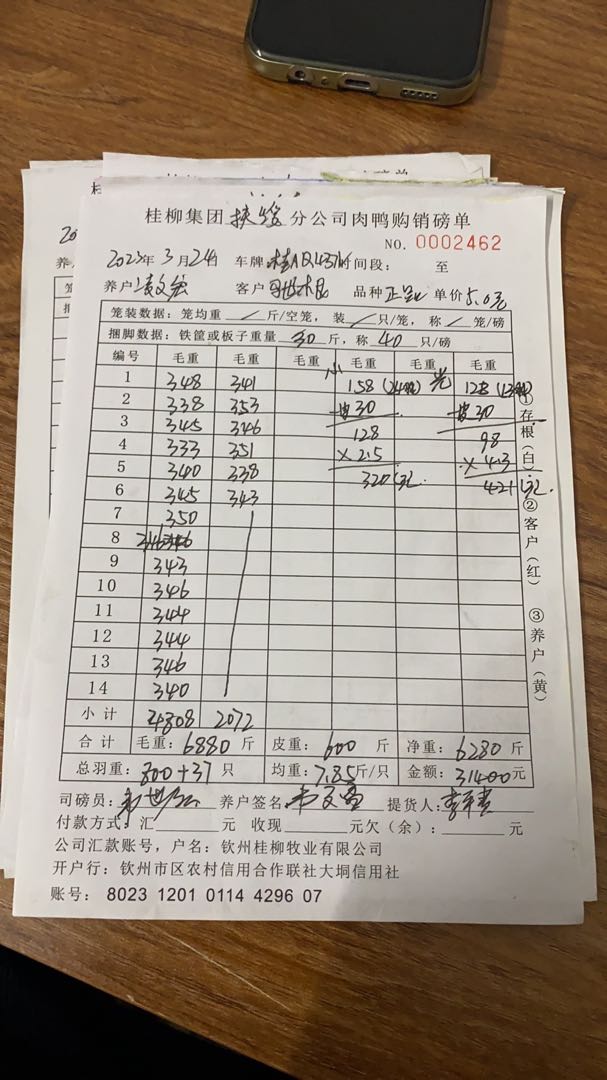 桂柳集团扶绥分公司肉鸭购销磅单
NO. 0002462
2023年3月24日 车牌 时间段： 至
养户 凌文宏 客户 品种 正品 单价 5.0元
笼装数据：笼均重 / 斤/空笼，装 / 只/笼，称 / 笼/磅
捆脚数据：铁筐或板子重量 30 斤，称 40 只/磅
编号 毛重 毛重 毛重 毛重 毛重 毛重
1 348 341 小 158 (24只) 光 128 (13只)
2 338 353 皮30 皮30
3 345 346 128 98
4 333 351 ×2.5 ×4.3
5 340 338 320元 421元
6 345 343
7 350
8 346
9 343
10 346
11 344
12 344
13 346
14 340
小计 4808 2072
合计 毛重：6880斤 皮重：600斤 净重：6280斤
总羽重：800+37只 均重：7.85斤/只 金额：31400元
司磅员： 养户签名： 提货人：
付款方式：汇 元 收现 元欠（余）： 元
公司汇款账号，户名：钦州桂柳牧业有限公司
开户行：钦州市区农村信用合作联社大垌信用社
账号：8023 1201 0114 4296 07
①存根（白）②客户（红）③养户（黄）